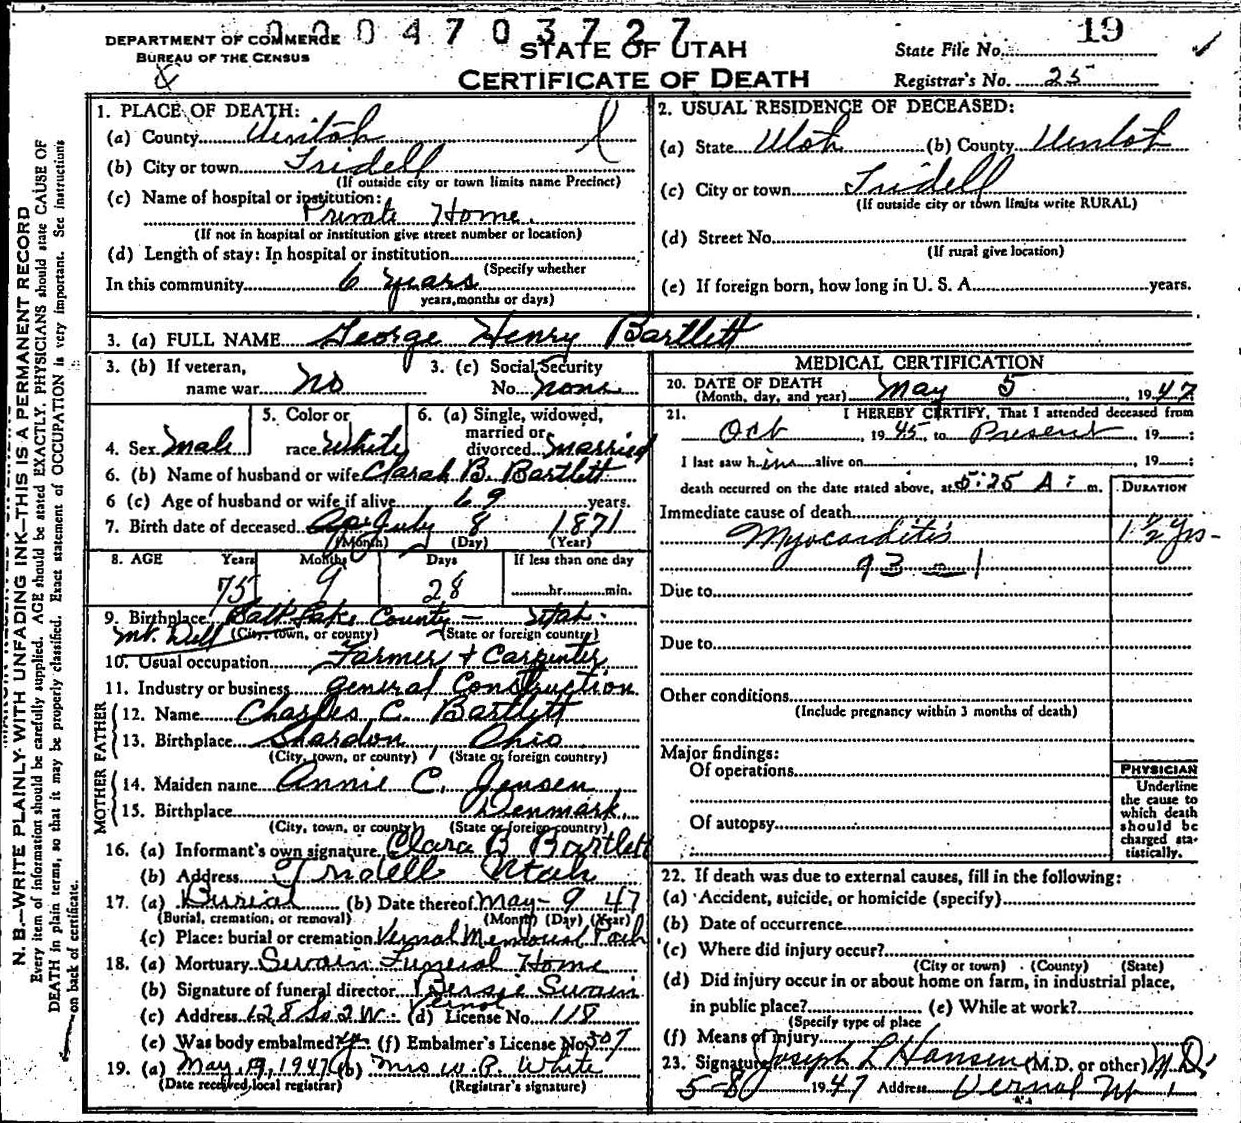 0004703727
DEPARTMENT OF COMMERCE
BUREAU OF THE CENSUS
STATE OF UTAH
CERTIFICATE OF DEATH
State File No. 19
Registrar's No. 25
N. B.—WRITE PLAINLY WITH UNFADING INK—THIS IS A PERMANENT RECORD
Every item of information should be carefully supplied. AGE should be stated EXACTLY. PHYSICIANS should state CAUSE OF
DEATH in plain terms, so that it may be properly classified. Exact statement of OCCUPATION is very important. See instructions
on back of certificate.
1. PLACE OF DEATH:
(a) County Uintah
(b) City or town Tridell
(If outside city or town limits name Precinct)
(c) Name of hospital or institution:
Private Home.
(If not in hospital or institution give street number or location)
(d) Length of stay: In hospital or institution
(Specify whether
In this community 6 years
years, months or days)
2. USUAL RESIDENCE OF DECEASED:
(a) State Utah (b) County Uintah
(c) City or town Tridell
(If outside city or town limits write RURAL)
(d) Street No.
(If rural give location)
(e) If foreign born, how long in U. S. A. years.
3. (a) FULL NAME George Henry Bartlett
3. (b) If veteran, name war no
3. (c) Social Security No. none
4. Sex male
5. Color or race White
6. (a) Single, widowed, married or divorced married
6. (b) Name of husband or wife Clarah B. Bartlett
6 (c) Age of husband or wife if alive 69 years.
7. Birth date of deceased July 8 1871
(Month) (Day) (Year)
8. AGE Years Months Days If less than one day
75 9 28 hr. min.
9. Birthplace Salt Lake County - Utah.
Mt. Dell (City, town, or county) (State or foreign country)
10. Usual occupation Farmer & Carpenter
11. Industry or business general Construction
FATHER
12. Name Charles C. Bartlett
13. Birthplace Chardon, Ohio
(City, town, or county) (State or foreign country)
MOTHER
14. Maiden name Annie C. Jensen
15. Birthplace Denmark.
(City, town, or county) (State or foreign country)
16. (a) Informant's own signature Clara B Bartlett
(b) Address Tridell Utah
17. (a) Burial (b) Date thereof May-9 47
(Burial, cremation, or removal) (Month) (Day) (Year)
(c) Place: burial or cremation Vernal Memorial Park
18. (a) Mortuary Swain Funeral Home
(b) Signature of funeral director Bessie Swain
Vernal
(c) Address 128 So. 2 W. (d) License No. 118
(e) Was body embalmed? (f) Embalmer's License No. 307
19. (a) May 9, 1947 (b) Mrs W. P. White
(Date received local registrar) (Registrar's signature)
MEDICAL CERTIFICATION
20. DATE OF DEATH
(Month, day, and year) May 5, 1947
21. I HEREBY CERTIFY, That I attended deceased from
Oct, 1945 to Present, 19 ;
I last saw him alive on 19 ;
death occurred on the date stated above, at 5:25 A. m.
DURATION
Immediate cause of death
Myocarditis 1 1/2 yrs-
93 - 1
Due to
Due to
Other conditions
(Include pregnancy within 3 months of death)
Major findings:
Of operations
Of autopsy
PHYSICIAN
Underline
the cause to
which death
should be
charged sta-
tistically.
22. If death was due to external causes, fill in the following:
(a) Accident, suicide, or homicide (specify)
(b) Date of occurrence
(c) Where did injury occur?
(City or town) (County) (State)
(d) Did injury occur in or about home on farm, in industrial place,
in public place? (e) While at work?
(Specify type of place
(f) Means of injury
23. Signature Joseph L Hansen (M.D. or other) M.D.
5-8 1947 Address Vernal Ut